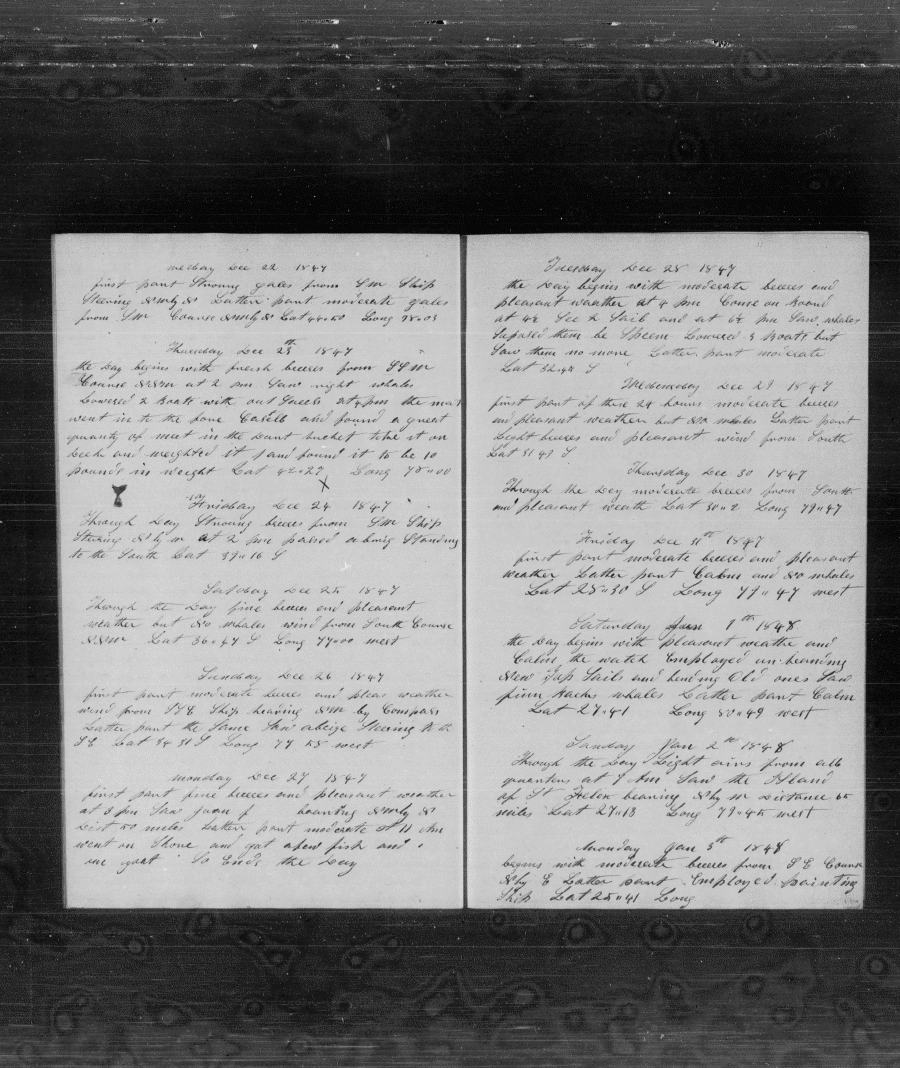 wedday Dec 22 1847
first part Strong gales from SW Ship
Steering NWbyN Latter part moderate gales
from SW Course NWbyN Lat 44.50 Long 78.03
Thursday Dec 23th 1847
the Day begins with fresh breeses from SSW
Course NNW at 2 pm Saw right whales
Lowered 2 boats with out Success at 4 pm the
went in to the fore and found a great
quantity of in the bucket it on
Deck and weighted it and found it to be 10
pounds in weight Lat 42.27 Long 78.00
X
Friday Dec 24 1847
Through Day Strong breeses from SW Ship
Stering N by W at 2 pm pased a brig Standing
to the South Lat 39.16 S
Saturday Dec 25 1847
Through the Day fine breeses and pleasant
weather but no whales wind from South Course
NNW Lat 36.47 S Long 77.00 west
Sunday Dec 26 1847
first part moderate breses and pleas weather
wind from Ship heading by Compass
Latter part the Same Saw Steering
SE Lat 34 31 S Long 77 58 west
monday Dec 27 1847
first part fine breeses and pleasant weather
at 3 pm Saw Juan f bearing NWby N
Dist 50 miles Latter part moderate at 11 Am
went on Shore and got a few fish and
one goat So Ends the Day
Tuesday Dec 28 1847
the Day begins with moderate breeses and
pleasant weather at 4 pm Come on board
at 4½ See 2 Sail and at 6½ pm Saw whales
Suposed them be Sperm Lowered 3 boats but
Saw them no more Latter part moderate
Lat 32.42 S
Wednesday Dec 29 1847
first part of these 24 hours moderate breeses
and pleasant weather but No whales Latter part
Light breeses and pleasant wind from South
Lat 31 47 S
Thursday Dec 30 1847
Through the Day moderate breeses from South
and pleasant weath Lat 30.2 Long 79.47
Friday Dec 31th 1847
first part moderate breeses and pleasant
weather Latter part Calm and No whales
Lat 28.30 S Long 79.47 west
Saturday Jan 1th 1848
the Day begins with pleasant weathe and
Calm the watch Employed un bending
New Top Sails and bending Old ones Saw
finn backs whales Latter part Calm
Lat 27.41 Long 80.49 west
Sunday Jan 2th 1848
Through the Day Light airs from all
quarters at 7 Am Saw the Island
of St Felex bearing N by W Distance 65
miles Lat 27.13 Long 79.45 west
Monday Jan 3th 1848
begins with moderate breeses from SE Course
N by E Latter part Employed painting
Ship Lat 25.41 Long